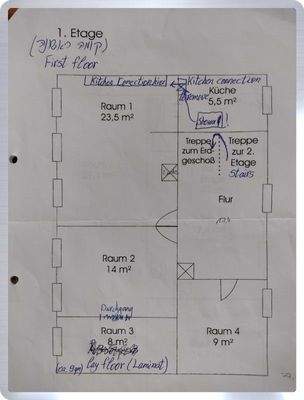 1. Etage
(קומה ראשונה)
First floor
Kitchen connection
Kitchen connection
Küche
5,5 m²
to remove
Raum 1
23,5 m²
Treppe
zum Erd-
geschoß
Treppe
zur 2.
Etage
Stairs
Flur
Raum 2
14 m²
Durchgang
Raum 3
8 m²
(ca. 9 qm)
Lay floor (Laminat)
Raum 4
9 m²